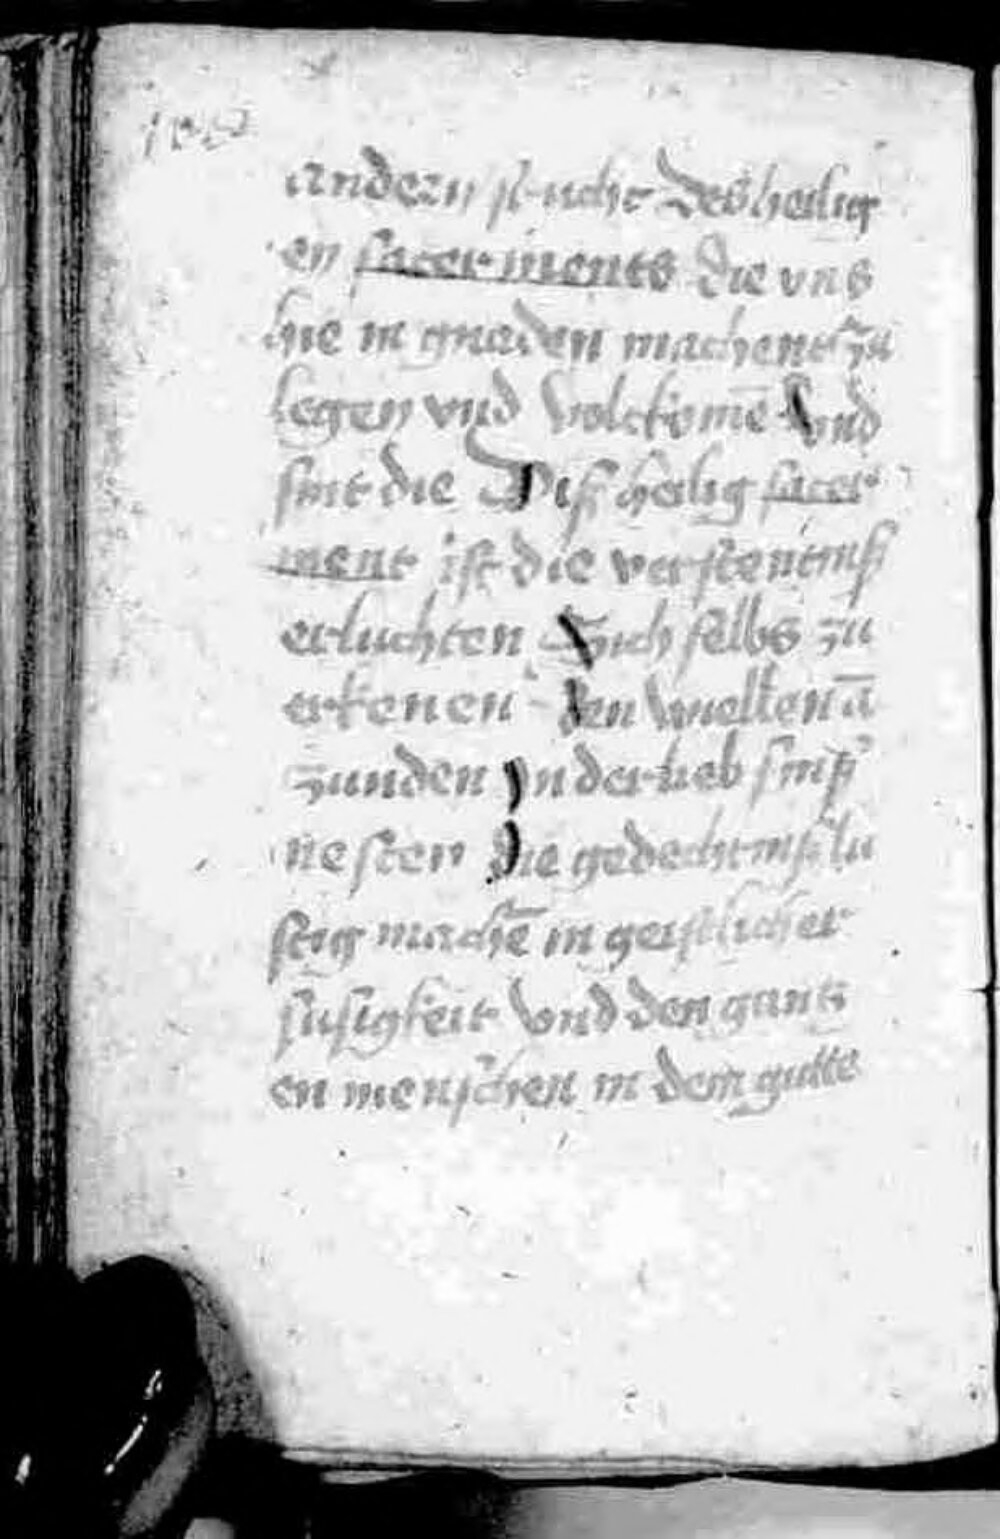 andern frucht des heilig
en sacerments die vns
hie in gnaden machent zu
legen vnd volckomē vnd
sint die Disß heilig sacer
ment ist die verstentniß
erluchten Sich selbs zu
erkenen den willen ā
zunden In der lieb sinß
nesten die gedechtniß lu
stig machē in geistlicher
susigkeit vnd den gantz
en menschen in dem gutte